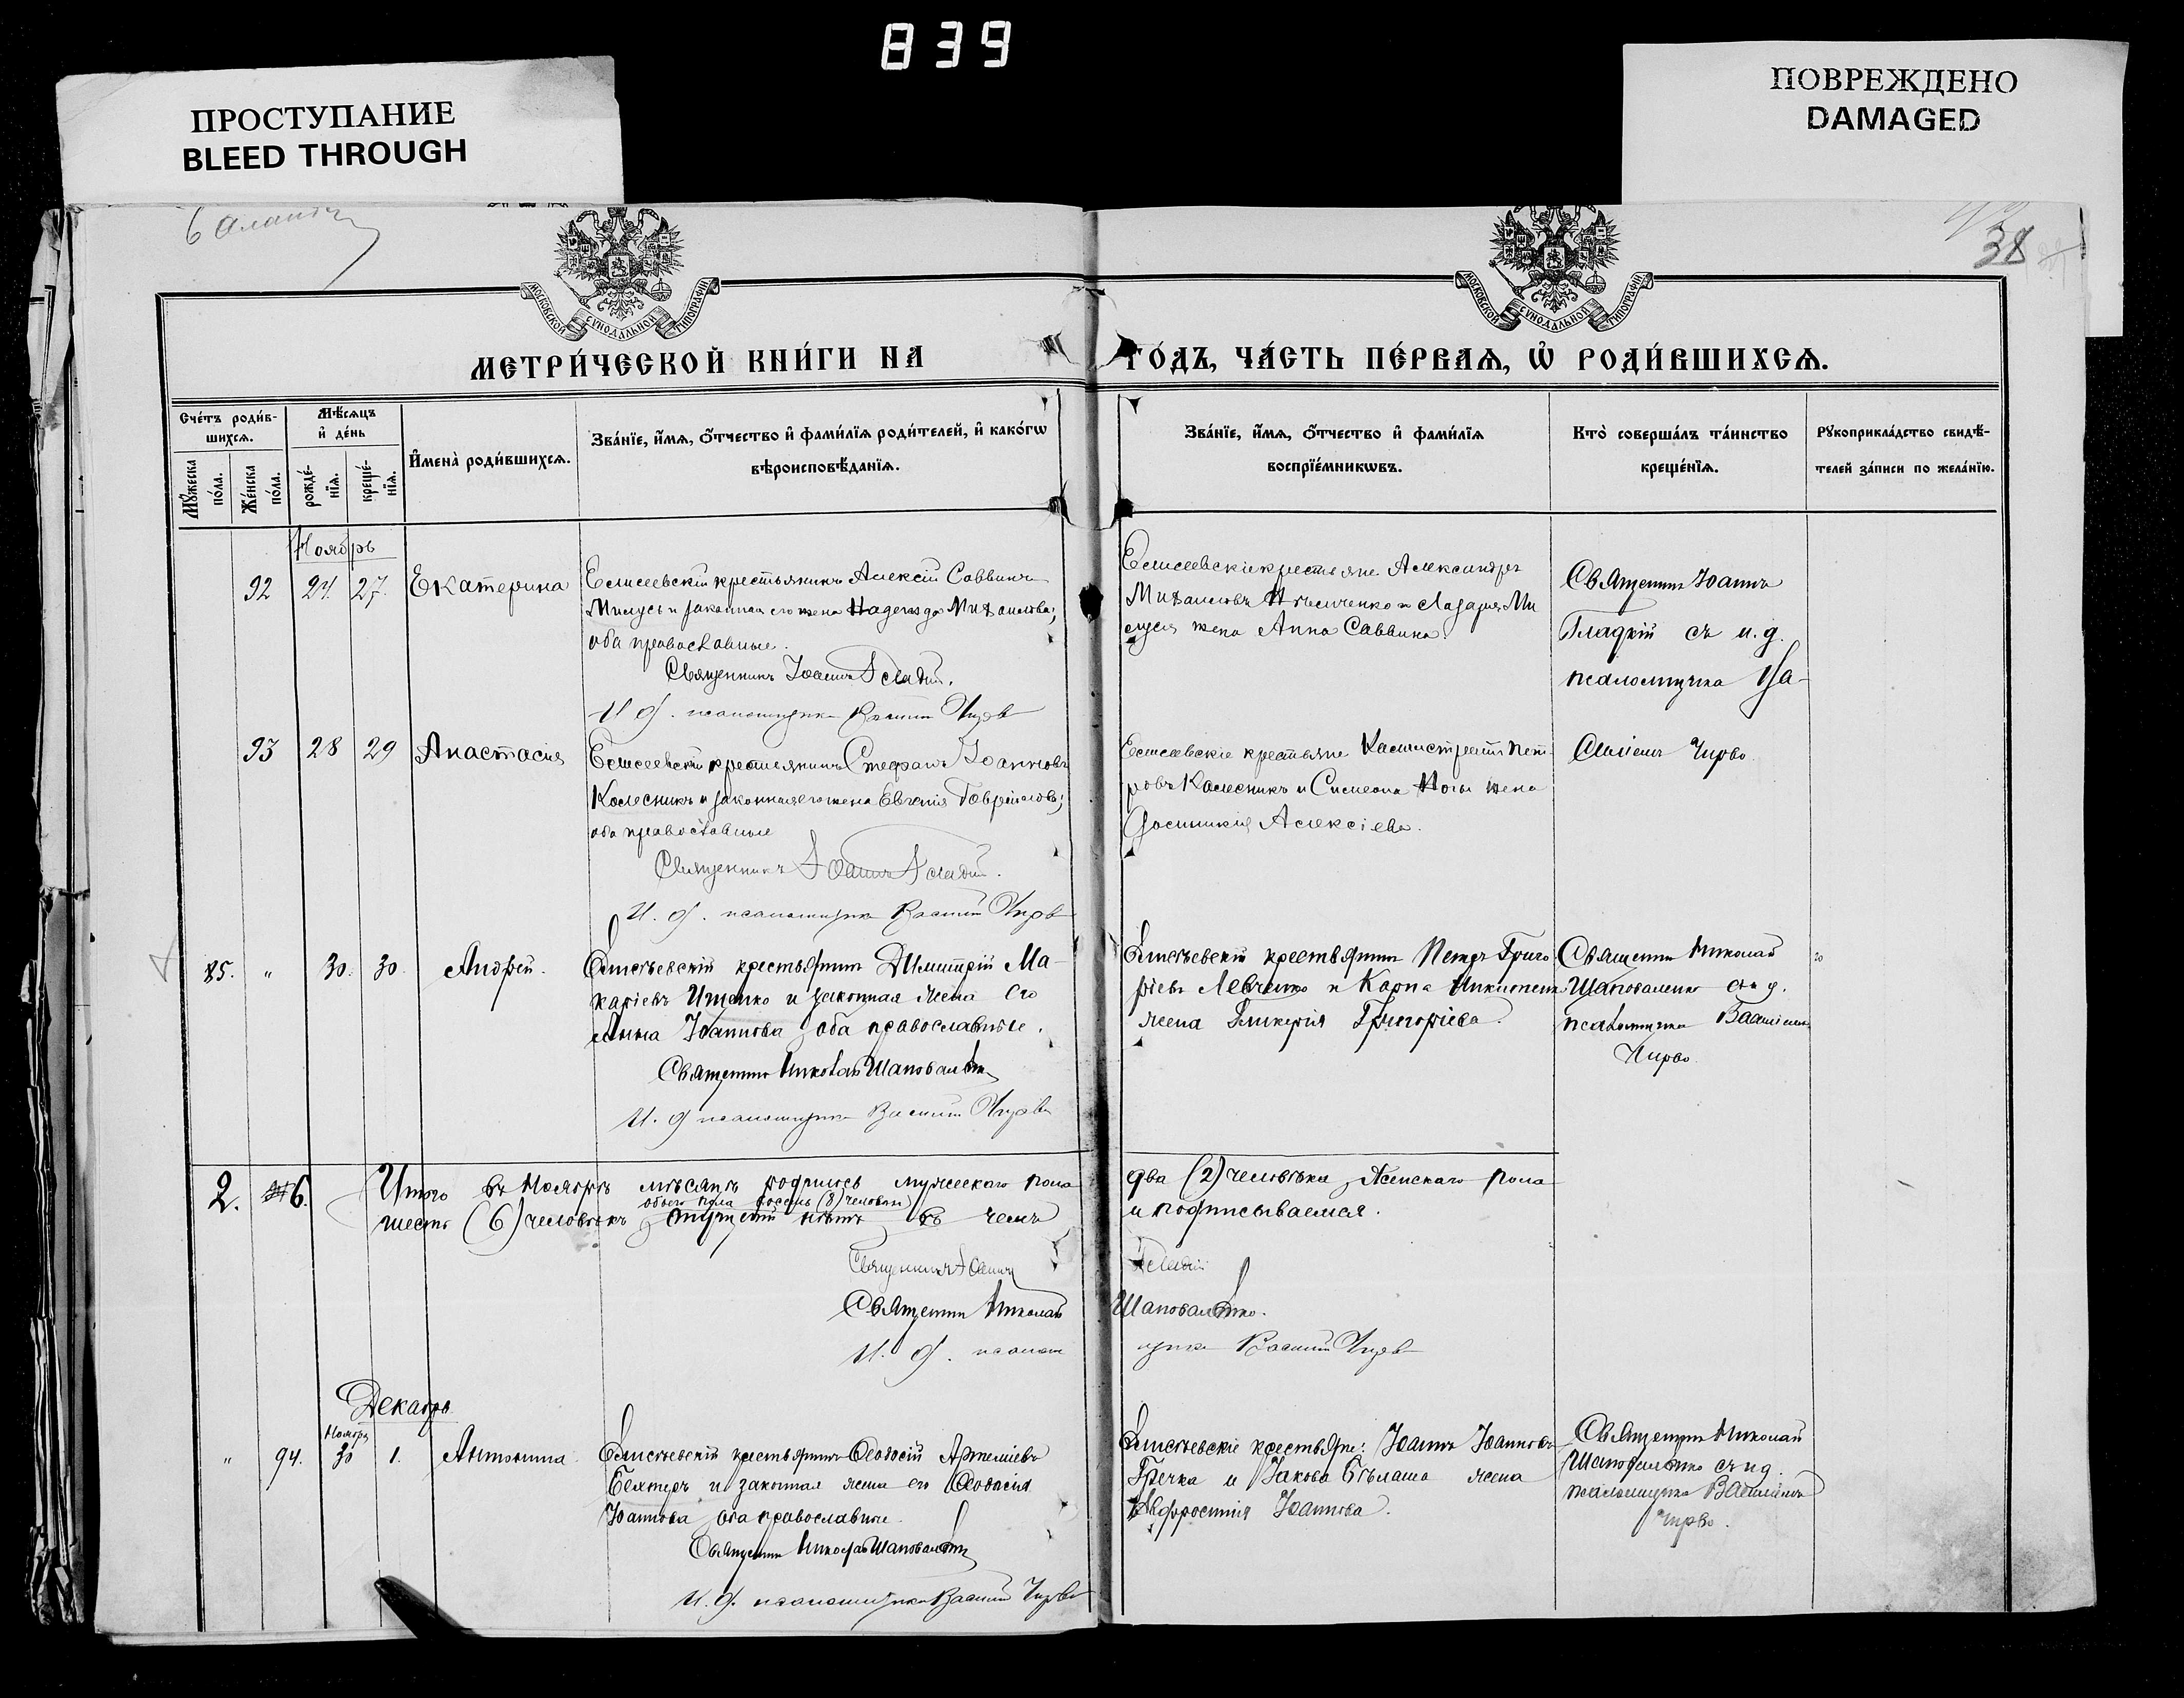 839
ПРОСТУПАНИЕ
BLEED THROUGH
ПОВРЕЖДЕНО
DAMAGED
38
МОСКОВСКОЙ СѴНОДАЛЬНОЙ ТИПОГРАФІИ
МОСКОВСКОЙ СѴНОДАЛЬНОЙ ТИПОГРАФІИ
МЕТРИ́ЧЕСКОЙ КНИ́ГИ НА ГО́ДЪ, ЧА́СТЬ ПЕ́РВАѦ, Ѡ҆ РОДИ́ВШИХСѦ.
Сче́тъ роди́в-
шихсѧ.
Мꙋ́жеска по́ла.
Же́нска по́ла.
Мѣ́сяцъ
и҆ де́нь
рожде́-
нїѧ.
креще́-
нїѧ.
И҆мена̀ роди́вшихсѧ.
Зва́нїе, и҆́мѧ, ѻ҆́тчество и҆ фами́лїѧ роди́телей, и҆ како́гѡ
вѣроисповѣ́данїѧ.
Зва́нїе, и҆́мѧ, ѻ҆́тчество и҆ фами́лїѧ
воспрїе́мникѡвъ.
Кто̀ соверша́лъ та́инство
креще́нїѧ.
Рꙋкоприкла́дство свидѣ́-
телей за́писи по жела́нїю.
Ноябрь
92 24. 27. Екатерина
Елисеевскій крестьянинъ Алексій Саввинъ
Милусь и законная его жена Надежда Михаилова;
оба православные.
Священникъ Іоаннъ Гладкій.
И. д. псаломщика Василій Чирво
Елисеевскіе крестьяне Александръ
Михаиловъ Ильченко и Лазаря Ми
луся жена Анна Саввина.
Священникъ Іоаннъ
Гладкій съ и. д.
псаломщика Ва-
93 28 29 Анастасія
Елисеевскій крестьянинъ Стефанъ Іоанновъ
Колесникъ и законная его жена Евгенія Гавріилова;
оба православные
Священникъ Іоаннъ Гладкій.
И. д. псаломщика Василій Чирво
Елисеевскіе крестьяне Каллистратъ Пет
ровъ Колесникъ и Симеона Ногы жена
Алексіева.
силіемъ Чирво
85. " 30. 30. Андрей.
Елисѣевскій крестьянинъ Димитрій Ма-
каріевъ Ищенко и законная жена его
Анна Іоаннова оба православные.
Священникъ Николай Шаповаленко
И. д псаломщика Василій Чирво
Елисѣевскій крестьянинъ Петръ Григо
ріевъ Левченко и Карпа
жена Гликерія Григоріева.
Священникъ Николай
Шаповаленко съ и д.
псаломщика Василіемъ
Чирво.
2. 6.
Итого въ Ноябрѣ мѣсяцѣ родилось мужескаго пола два (2) человѣка, женскаго пола
обоего пола восемь (8) человѣкъ
шесть (6) человѣкъ нѣтъ въ чемъ и подписываемся.
Священникъ Іоаннъ Гладкій
Священникъ Николай Шаповаленко.
И. д. псаломщика Василій Чирво
Декабрь
Ноября
" 94. 30 1. Антонина
Елисѣевскій крестьянинъ Ѳеодосій Артеміевъ
Бехтеръ и законная жена его Ѳеодосія
Іоаннова оба православные.
Священникъ Николай Шаповаленко
И. д. псаломщика Василій Чирво
Елисѣевскіе крестьяне: Іоаннъ Іоанновъ
Гречка и Іакова Бѣлаша жена
Евфросинія Іоаннова.
Священникъ Николай
Шаповаленко съ и д.
псаломщика Василіемъ
Чирво.